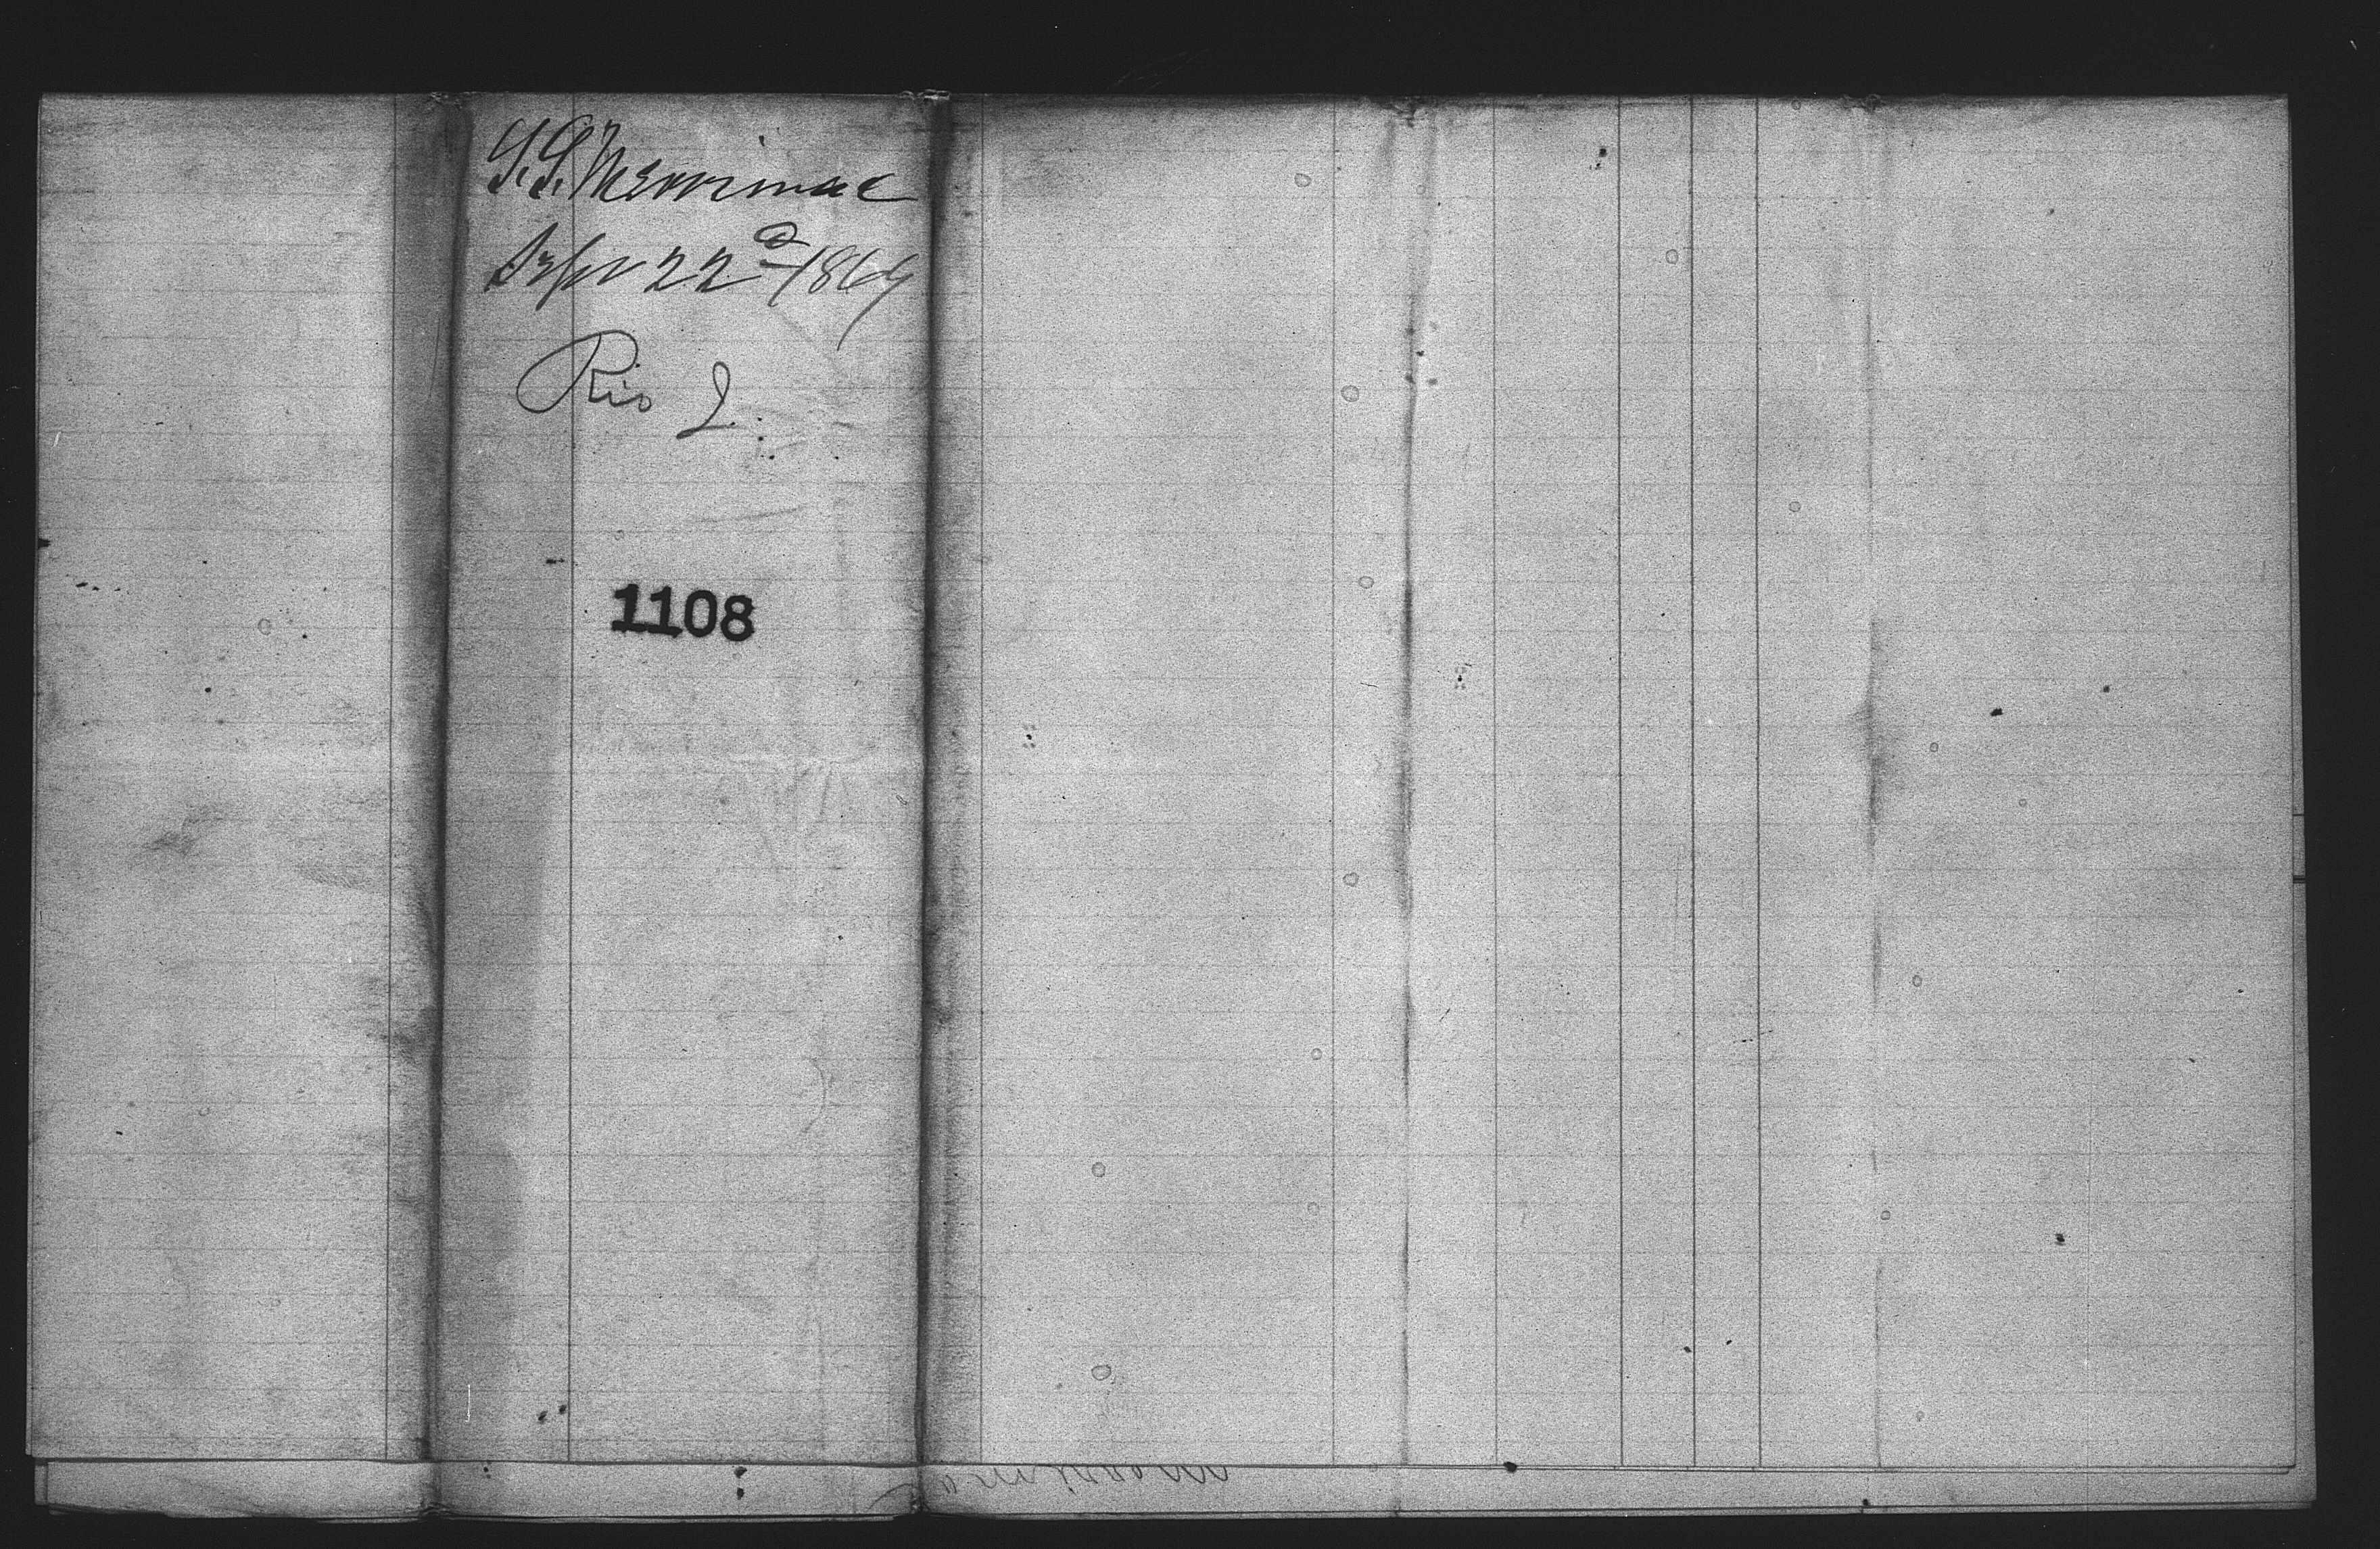 S.S. Merrimac
Sepr 22d 1869
Rio J.
1108